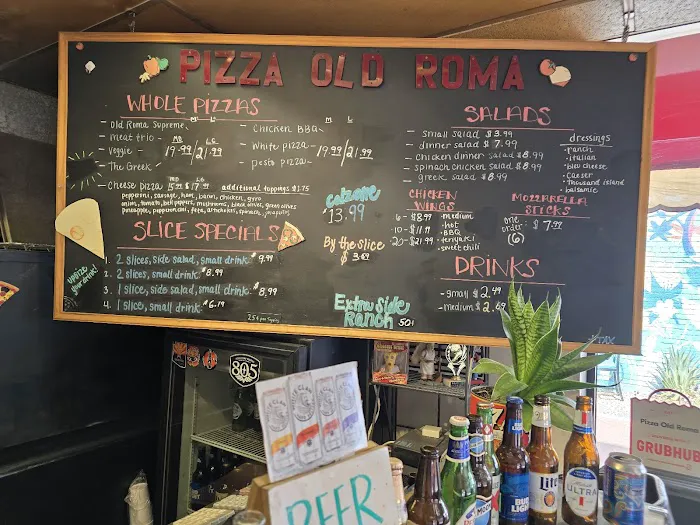 PIZZA OLD ROMA
WHOLE PIZZAS
- Old Roma Supreme
- meat trio -
- Veggie -
- The Greek
MD LG
19.99/21.99
- Chicken BBQ
- White pizza -
- pesto pizza
M L
19.99/21.99
- Cheese pizza MD 15.99 LG $17.99
additional toppings $1.75
pepperoni, sausage, ham, bacon, chicken, gyro
onion, tomato, bell peppers, mushrooms, black olives, green olives
pineapple, pepperoncini, feta, artichokes, spinach, jalapeños
SLICE SPECIALS
1. 2 slices, side salad, small drink: $9.99
2. 2 slices, small drink: $8.99
3. 1 slice, side salad, small drink: $8.99
4. 1 slice, small drink: $6.19
upsize your drink!
calzone
$13.99
By the slice
$3.69
Extra Side
Ranch 50¢
SALADS
- small salad $3.99
- dinner salad $7.99
- chicken dinner salad $8.99
- spinach chicken salad $8.99
- greek salad $8.99
dressings
- ranch
- italian
- bleu cheese
- caesar
- thousand island
- balsamic
CHICKEN
WINGS
6 - $8.99
10 - $11.99
20 - $21.99
- medium
- hot
- BBQ
- teriyaki
- sweet chili
MOZZARELLA
STICKS
one
order -
(6)
$7.99
DRINKS
- small $2.49
- medium $2.69
805
BEER
BUD
LIGHT
Lite
ULTRA
Pizza Old Roma
GRUBHUB